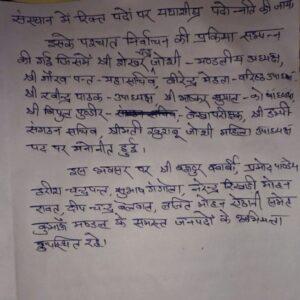 संस्थान में रिक्त पदों पर यथाशीघ्र पदोन्नति की जाय।
इसके पश्चात निर्वाचन की प्रक्रिया सम्पन्न
की गई जिसमें श्री शेखर जोशी - मण्डलीय अध्यक्ष,
श्री गौरव पन्त - महासचिव, वीरेन्द्र मेहता - वरिष्ठ उपाध्यक्ष
श्री रवीन्द्र पाठक - उपाध्यक्ष, श्री भास्कर - कोषाध्यक्ष
श्री विपुल - लेखा परीक्षक, श्री
संगठन सचिव, श्रीमती खुशबू जोशी महिला उपाध्यक्ष
पद पर मनोनीत हुई।
इस अवसर पर श्री बहादुर, प्रमोद पाण्डेय
हरीश चन्द्र पन्त, सुभाष, नरेन्द्र मोहन
रावत, दीप चन्द्र बेलवाल, ललित मोहन समेत
कुमाऊँ मण्डल के समस्त जनपदों के अभियन्ता
उपस्थित रहे।